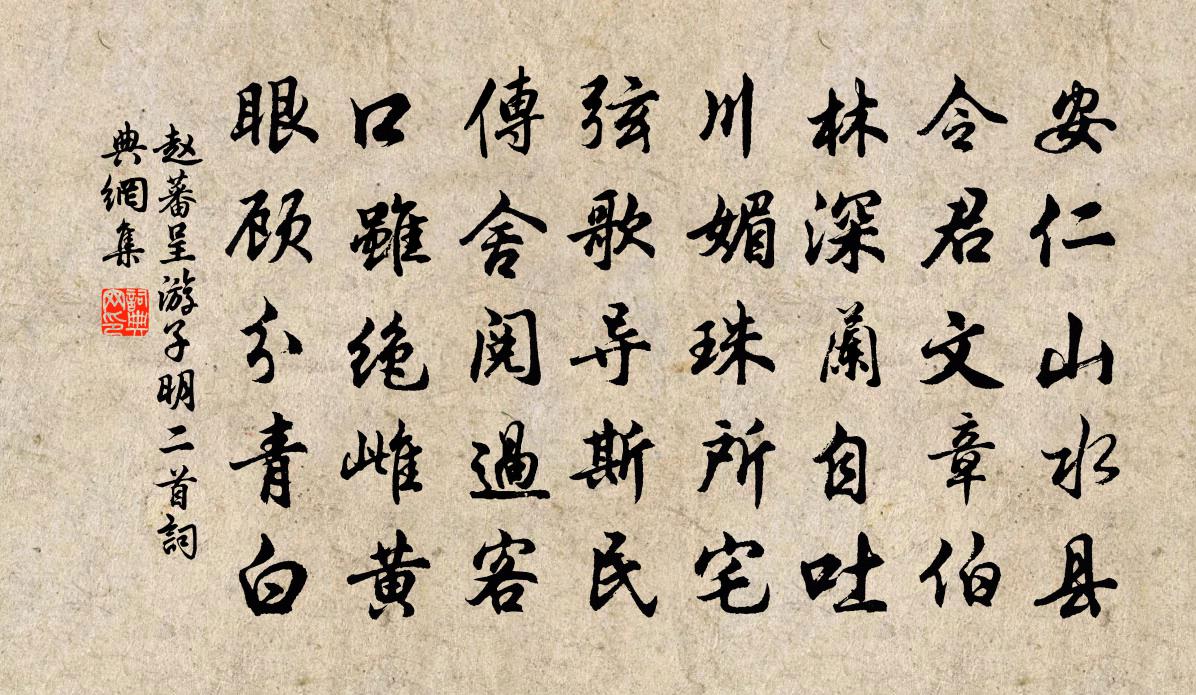 安仁山水县
令君文章伯
林深蘭自吐
川媚珠所宅
弦歌导斯民
傳舍阅過客
口雖绝雌黄
眼顾分青白
赵蕃呈游子明二首詞
典網集
詞典
网印